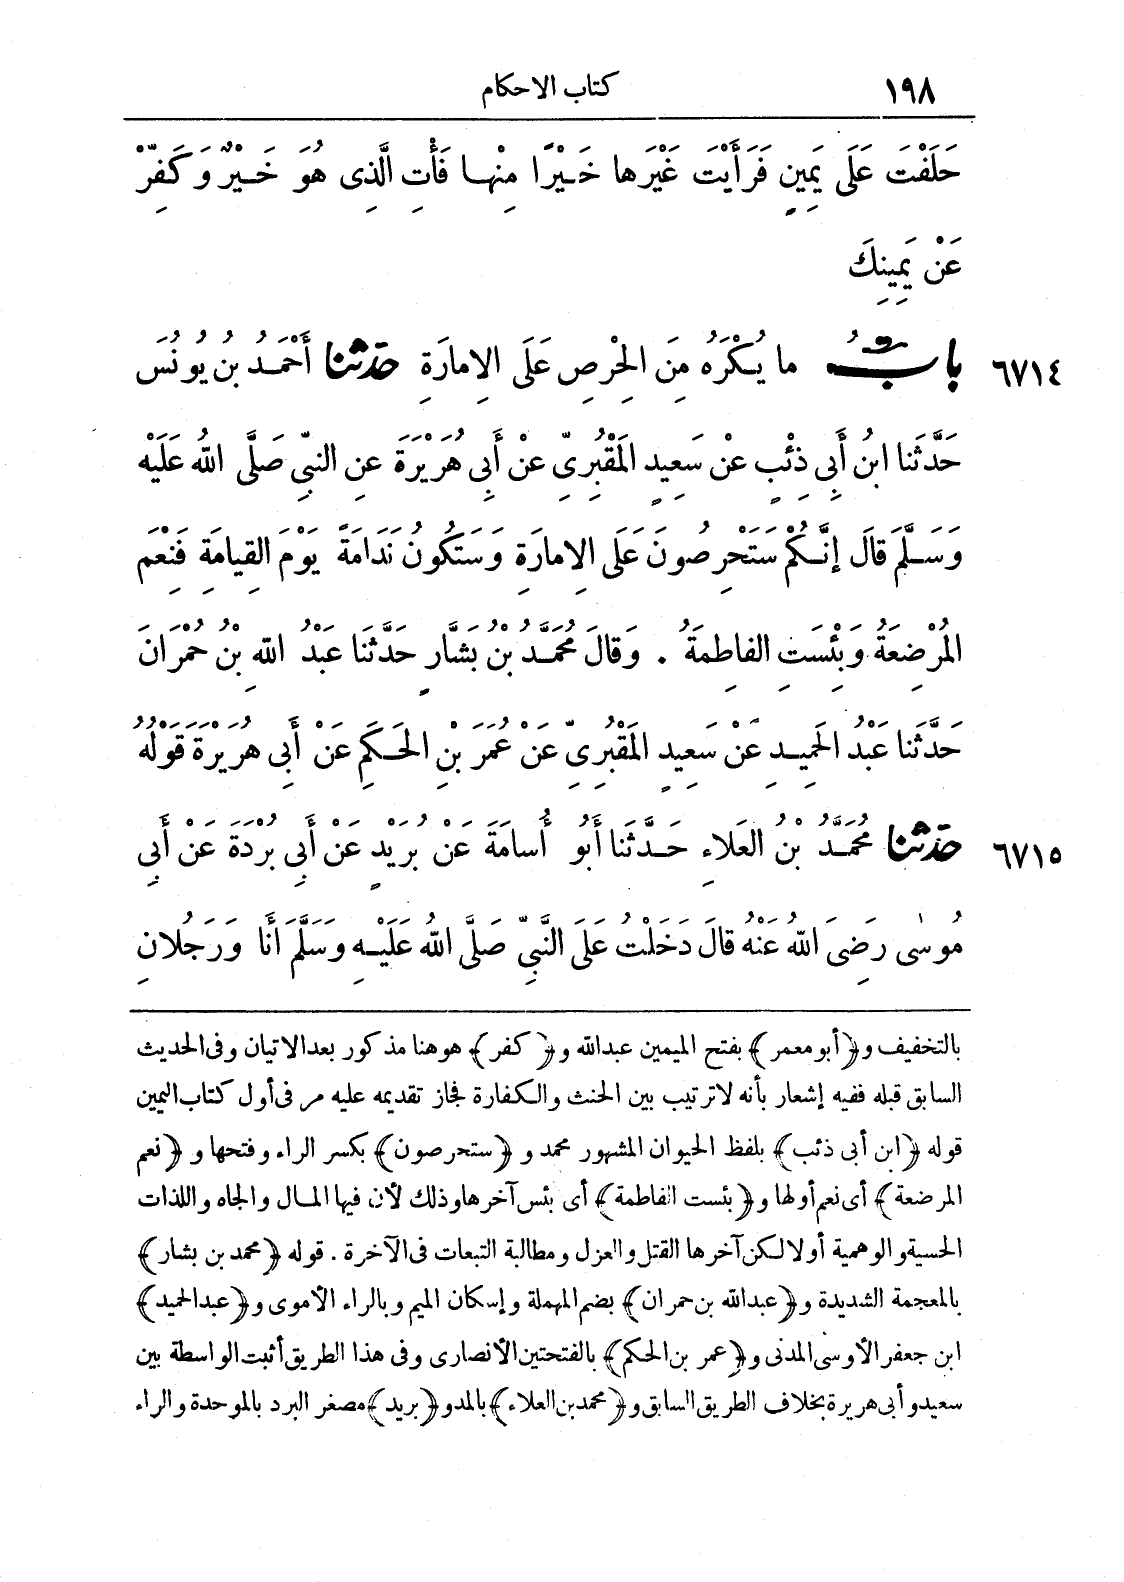 ١٩٨ كتاب الاحكام
حَلَفْتَ عَلَى يَمِينٍ فَرَأَيْتَ غَيْرَها خَيْرًا مِنْها فَأْتِ الَّذِى هُوَ خَيْرٌ وَكَفِّرْ
عَنْ يَمِينِكَ
٦٧١٤ بابُ ما يُكْرَهُ مِنَ الحِرْصِ عَلَى الإِمارَةِ حدثنا أَحْمَدُ بْنُ يُونُسَ
حَدَّثَنا ابنُ أَبِى ذِئْبٍ عَنْ سَعِيدٍ المَقْبُرِىِّ عَنْ أَبِى هُرَيْرَةَ عَنِ النبىِّ صَلَّى اللهُ عَلَيْهِ
وَسَلَّمَ قالَ إِنَّكُمْ سَتَحْرِصُونَ عَلَى الإِمارَةِ وَسَتَكُونُ نَدَامَةً يَوْمَ القِيامَةِ فَنِعْمَ
المُرْضِعَةُ وَبِئْسَتِ الفاطِمَةُ . وَقالَ مُحَمَّدُ بْنُ بَشَّارٍ حَدَّثَنا عَبْدُ اللهِ بْنُ حُمْرَانَ
حَدَّثَنا عَبْدُ الحَمِيدِ عَنْ سَعِيدٍ المَقْبُرِىِّ عَنْ عُمَرَ بْنِ الحَكَمِ عَنْ أَبِى هُرَيْرَةَ قَوْلُهُ
٦٧١٥ حدثنا مُحَمَّدُ بْنُ العَلاءِ حَدَّثَنا أَبُو أُسامَةَ عَنْ بُرَيْدٍ عَنْ أَبِى بُرْدَةَ عَنْ أَبِى
مُوسٰى رَضِىَ اللهُ عَنْهُ قالَ دَخَلْتُ عَلَى النَّبِىِّ صَلَّى اللهُ عَلَيْهِ وَسَلَّمَ أَنا وَرَجُلانِ
بالتخفيف و﴿أبو معمر﴾ بفتح الميمين عبدالله و﴿كفر﴾ هو هنا مذكور بعد الاتيان وفى الحديث
السابق قبله ففيه إشعار بأنه لا ترتيب بين الحنث والكفارة فجاز تقديمه عليه مر فى أول كتاب اليمين
قوله ﴿ابن أبى ذئب﴾ بلفظ الحيوان المشهور محمد و﴿ستحرصون﴾ بكسر الراء وفتحها و﴿نعم
المرضعة﴾ أى نعم أولها و﴿بئست الفاطمة﴾ أى بئس آخرها وذلك لأن فيها المال والجاه واللذات
الحسية والوهمية أولا لكن آخرها القتل والعزل ومطالبة التبعات فى الآخرة . قوله ﴿محمد بن بشار﴾
بالمعجمة الشديدة و﴿عبدالله بن حمران﴾ بضم المهملة وإسكان الميم وبالراء الأموى و﴿عبد الحميد﴾
ابن جعفر الأوسى المدنى و﴿عمر بن الحكم﴾ بالفتحتين الأنصارى وفى هذا الطريق أثبت الواسطة بين
سعيد وأبى هريرة بخلاف الطريق السابق و﴿محمد بن العلاء﴾ بالمد و﴿بريد﴾ مصغر البرد بالموحدة والراء